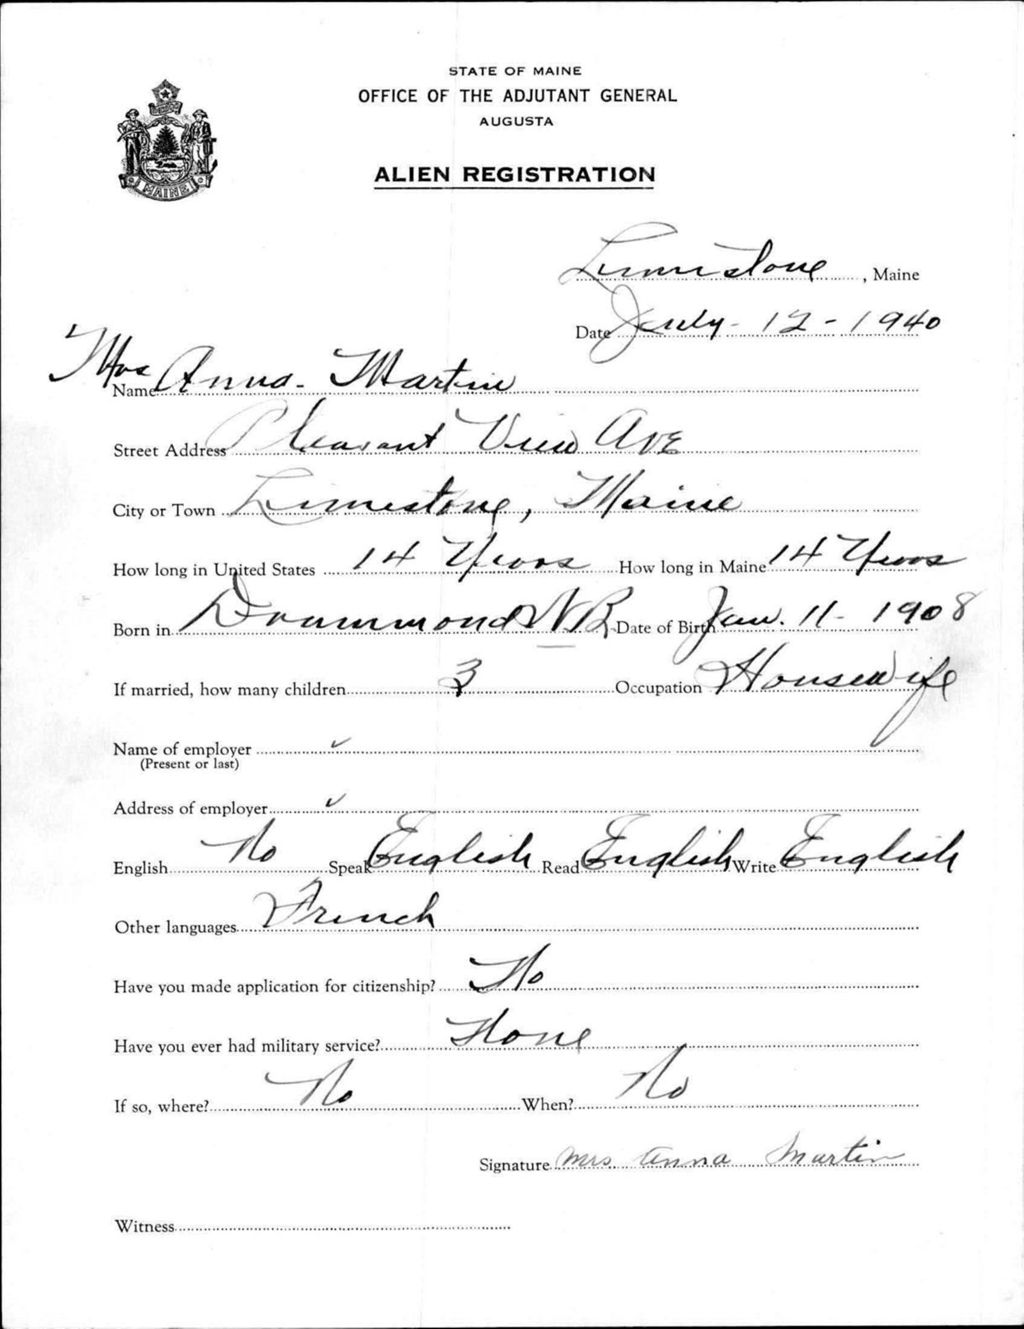 STATE OF MAINE
OFFICE OF THE ADJUTANT GENERAL
AUGUSTA
ALIEN REGISTRATION
MAINE
Limestone, Maine
Date July - 12 - 1940
Name Mrs Anna. Martin
Street Address Pleasant View AVE
City or Town Limestone, Maine
How long in United States 14 Years How long in Maine 14 Years
Born in Drummond N B. Date of Birth Jan. 11 - 1908
If married, how many children 3 Occupation Housewife
Name of employer ✓
(Present or last)
Address of employer ✓
English No Speak English Read English Write English
Other languages French
Have you made application for citizenship? No
Have you ever had military service? None
If so, where? No When? No
Signature Mrs Anna Martin
Witness